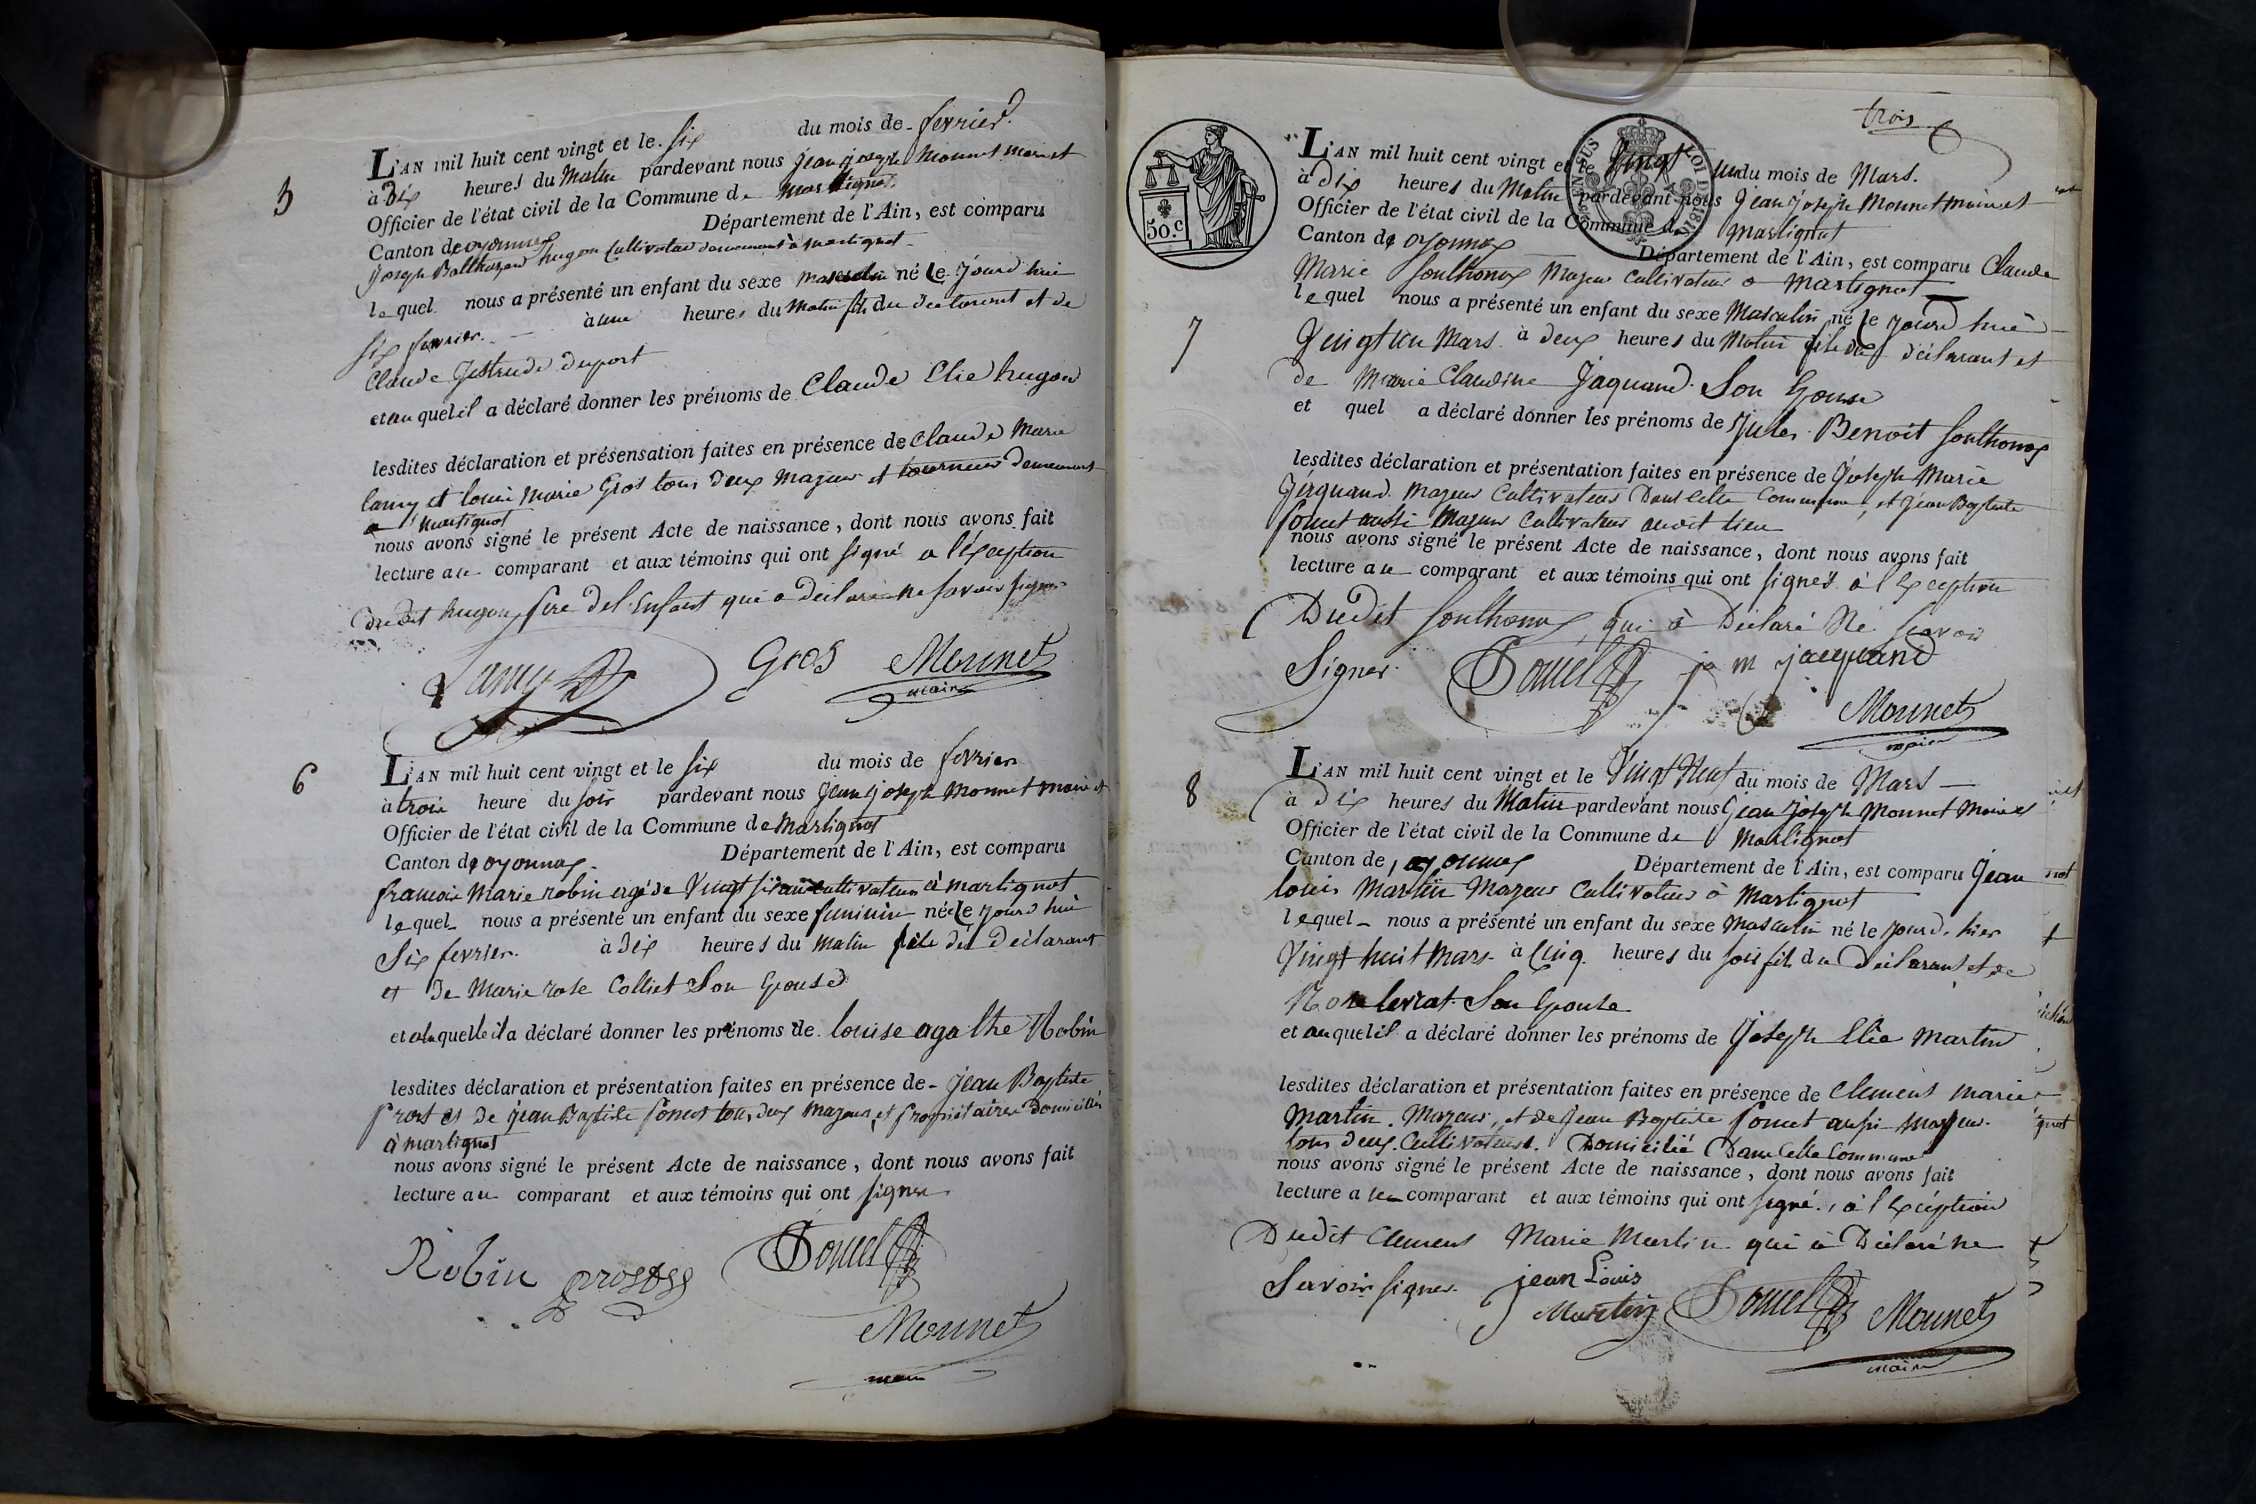 5
L'AN mil huit cent vingt et le six du mois de fevrier.
à Dix heures du Matin pardevant nous jean joseph Monnet maire et
Officier de l'état civil de la Commune de Martignat
Canton de oyonnax Département de l'Ain, est comparu
joseph Balthazard hugon Cultivateur demeurant à martignat
lequel nous a présenté un enfant du sexe masculin né le jourd'hui
six fevrier. à une heure du Matin fils du declarant et de
Claude Gertrude duport
et auquel il a déclaré donner les prénoms de Claude Elie hugon
lesdites déclaration et présensation faites en présence de Claude Marie
lamy et louis Marie Gros tous deux Majeurs et tourneurs demeurant
a martignat
nous avons signé le présent Acte de naissance, dont nous avons fait
lecture au comparant et aux témoins qui ont signé a l'exception
du dit hugon père del'Enfant qui a déclaré ne savoir signer
Lamy Gros Monnet
maire
6
L'AN mil huit cent vingt et le six du mois de fevrier
à trois heure du soir pardevant nous jean joseph Monnet maire et
Officier de l'état civil de la Commune de Martignat
Canton de oyonnax. Département de l'Ain, est comparu
francois Marie robin agé de Vingt six ans cultivateur à martignat
lequel nous a présenté un enfant du sexe feminin née le jourd'hui
Six fevrier. à Dix heures du Matin fille du Déclarant
et De Marie rose Colliet Son Epouse
et alaquelle il a déclaré donner les prénoms de louise agathe Robin
lesdites déclaration et présentation faites en présence de jean Baptiste
prost et de jean Baptiste sonet tous deux Majeurs et propriétaires Domiciliés
à martignat
nous avons signé le présent Acte de naissance, dont nous avons fait
lecture au comparant et aux témoins qui ont signer
Robin prost Sonet
Monnet
maire
trois
EN SUS
LOI DE 1816
50.c
L'AN mil huit cent vingt et le Vingt un du mois de Mars.
à Dix heures du Matin pardevant nous Jean Joseph Monnet maire et
Officier de l'état civil de la Commune de Martignat
Canton de oyonnax Département de l'Ain, est comparu Claude
Marie Southonax Majeur Cultivateur à Martignat
lequel nous a présenté un enfant du sexe Masculin né le jourd'hui
7
Vingt un Mars à deux heures du Matin fils du déclarant et
de Marie Claudine Jaquand. Son Epouse
et quel a déclaré donner les prénoms de Jules Benoit Southonax
lesdites déclaration et présentation faites en présence de Joseph Marie
Jaquand Majeur Cultivateur Dans Cette Commune, et Jean Baptiste
Sonet aussi Majeur Cultivateur audit lieu
nous avons signé le présent Acte de naissance, dont nous avons fait
lecture au comparant et aux témoins qui ont signés à l'Exception
Dudit Southonax, qui à Déclaré Ne scavoir
Signer. Sonet j m jacquand
Monnet
maire
8
L'AN mil huit cent vingt et le Vingt Neuf du mois de Mars
à Dix heures du Matin pardevant nous Jean Joseph Monnet Maire et
Officier de l'état civil de la Commune de Martignat
Canton de oyonnax Département de l'Ain, est comparu Jean
louis Martin Majeur Cultivateur à Martignat
lequel nous a présenté un enfant du sexe Masculin né le jourd. hier
Vingt huit Mars à Cinq heures du soir fils du Déclarant et de
Rose levrat Son Epouse
et auquel il a déclaré donner les prénoms de Joseph Elie Martin
lesdites déclaration et présentation faites en présence de Clement Marie
Martin. Majeur, et de Jean Baptiste Sonet aussi Majeur
tous deux. Cultivateurs. Domicilié Dans Cette Commune
nous avons signé le présent Acte de naissance, dont nous avons fait
lecture a comparant et aux témoins qui ont signé, à l'Exception
Dudit Clement Marie Martin qui à Déclaré ne
Savoir signer. jean Louis
Martin Sonet Monnet
maire